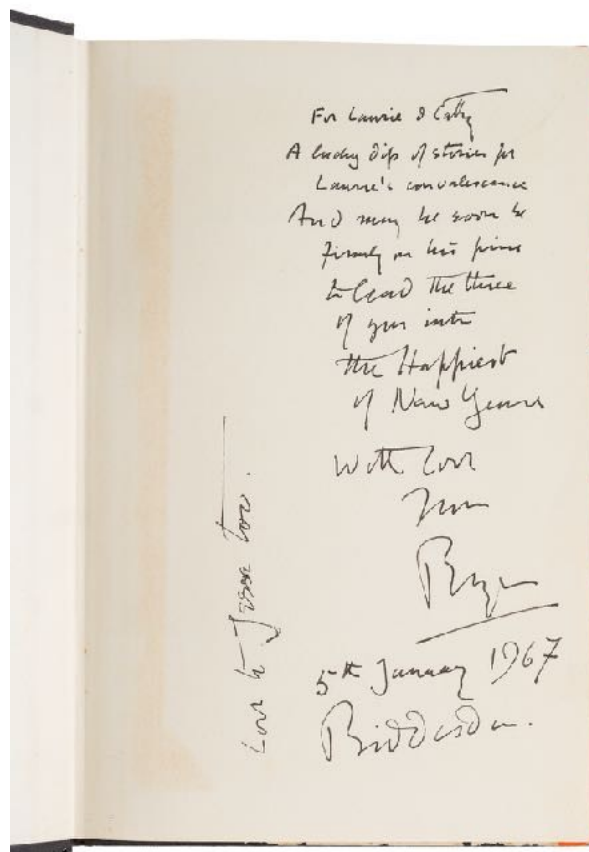 For Laurie & Cathy
A lucky dip of stories for
Laurie's convalescence
And may he soon be
firmly on his pins
to lead the three
of you into
the Happiest
of New Years
With love
from
Bryan
5th January 1967
Biddesden.
Love to Jesse too.